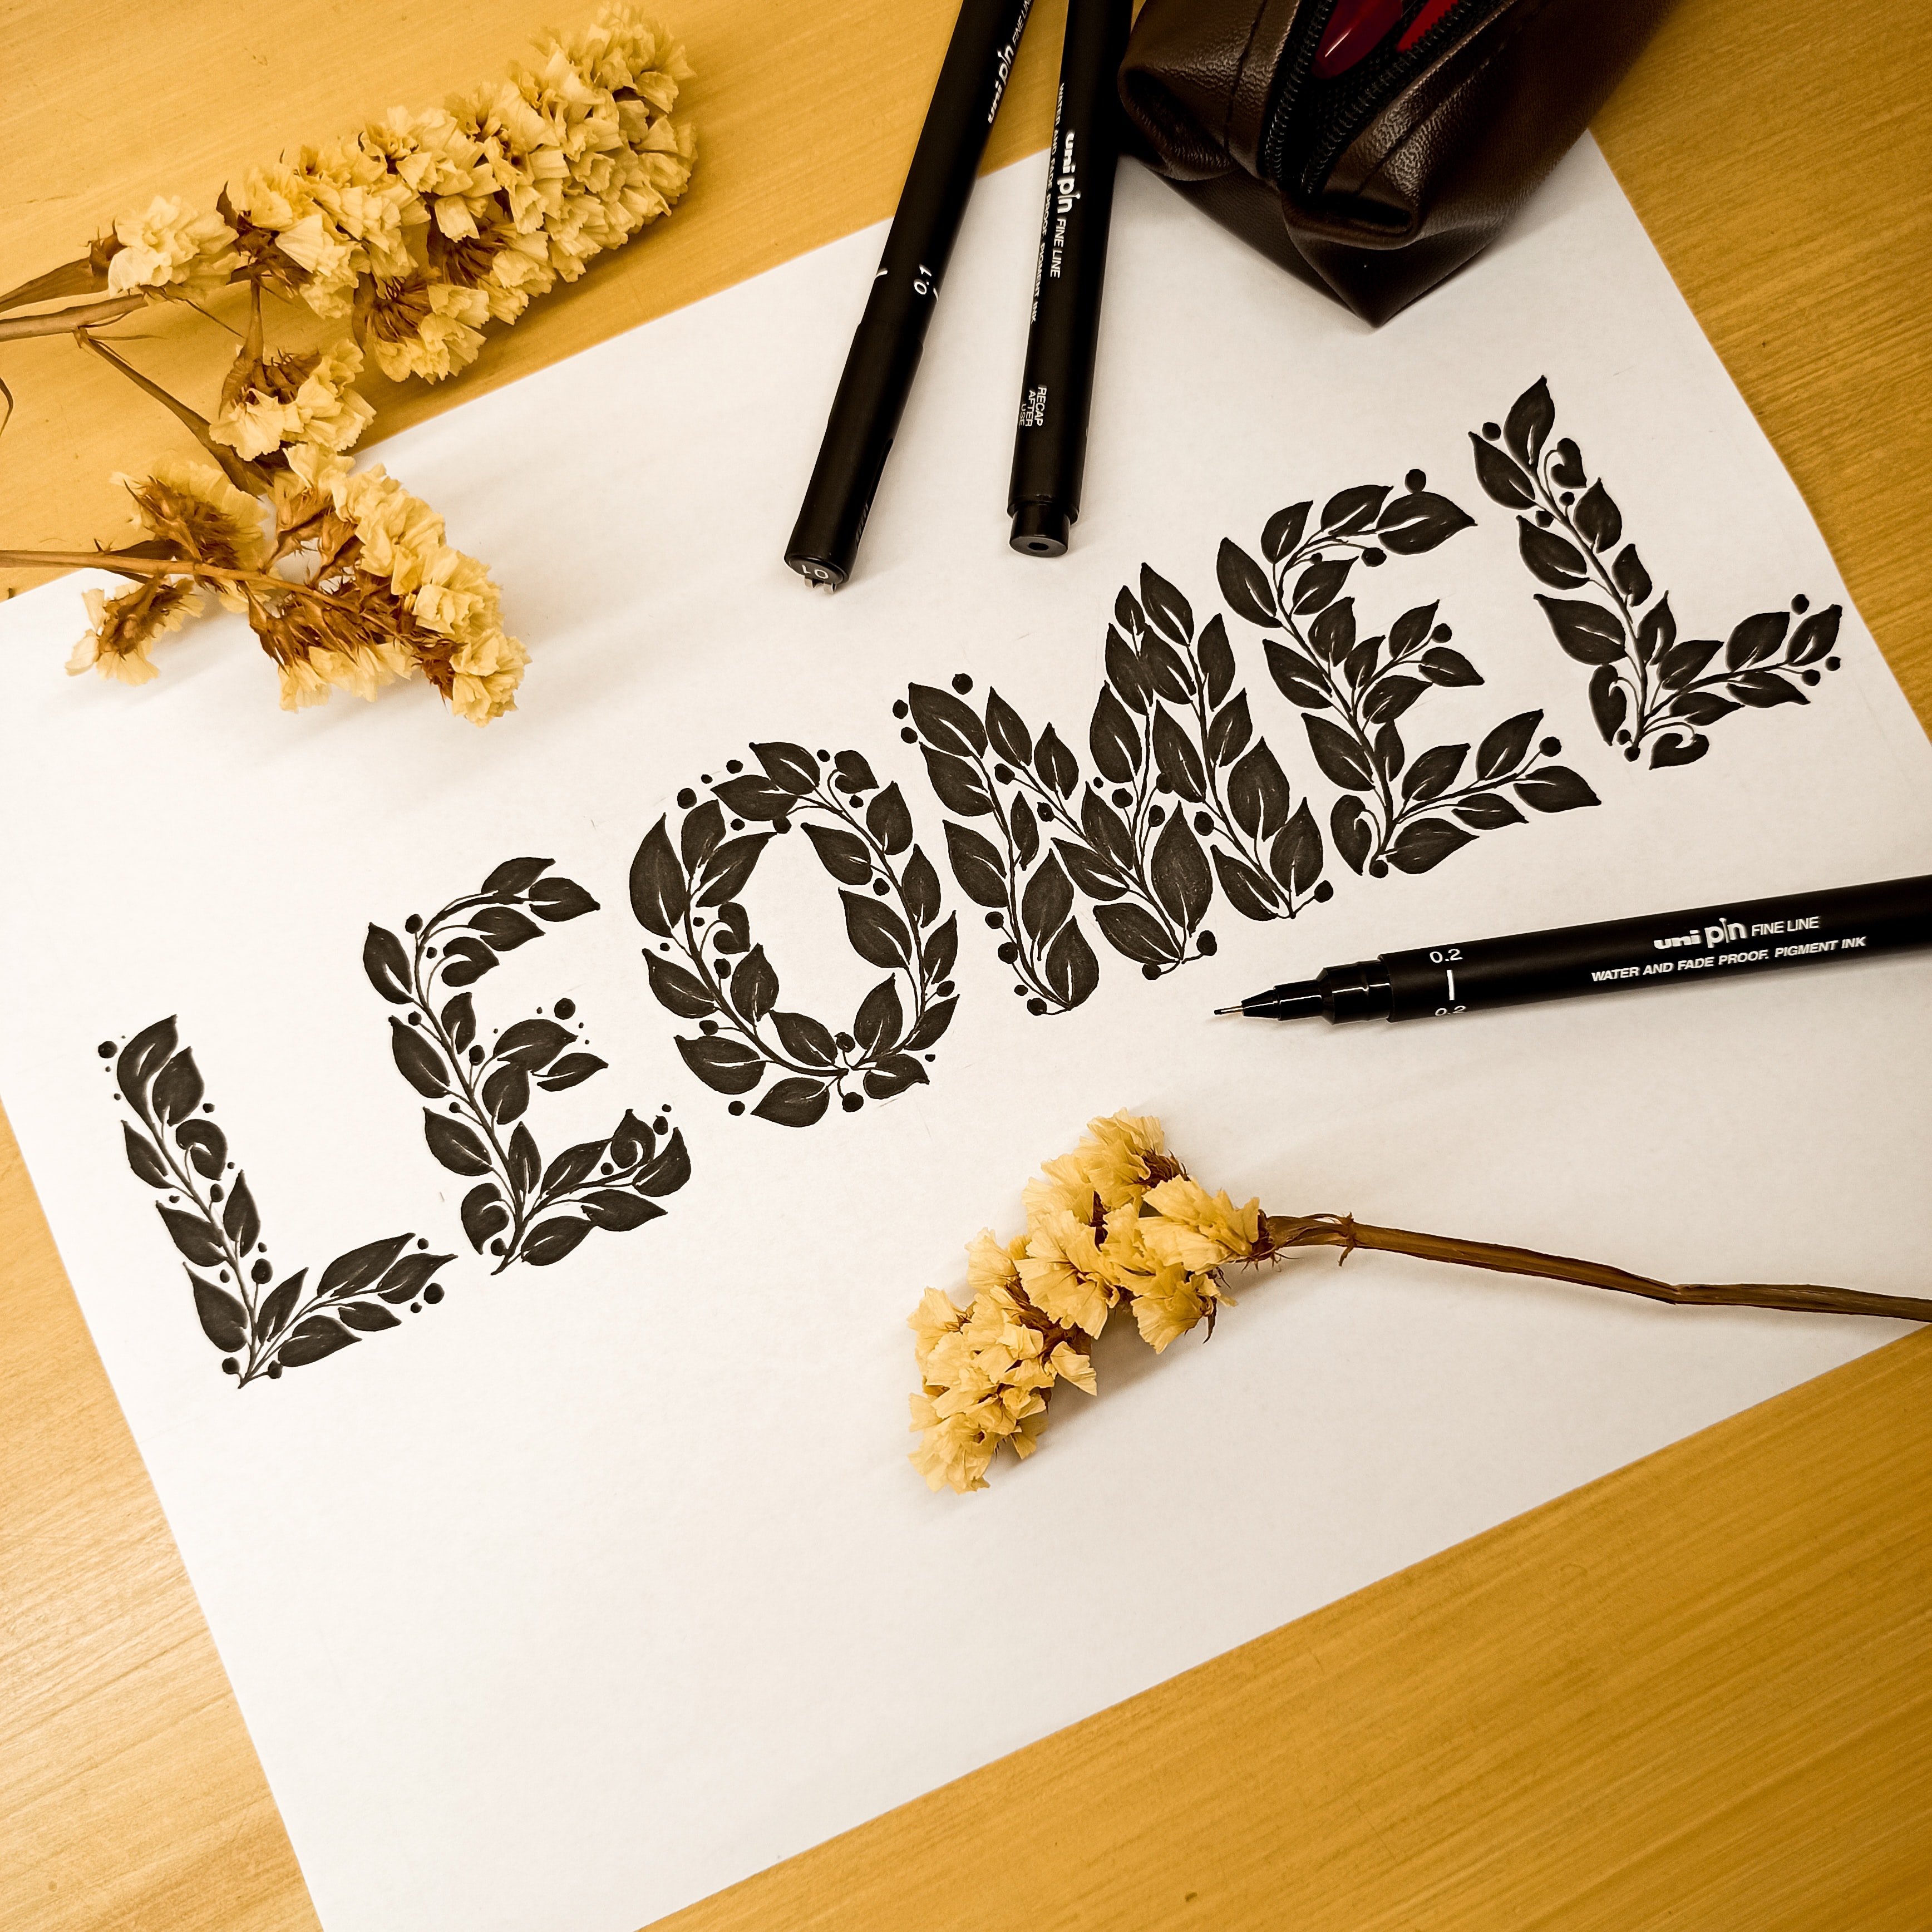 uni pin FINE LINE
0.1
01
uni pin FINE LINE
WATER AND FADE PROOF. PIGMENT INK
RECAP
AFTER
USE
LEOMEL
uni pin FINE LINE
WATER AND FADE PROOF. PIGMENT INK
0.2
0.2